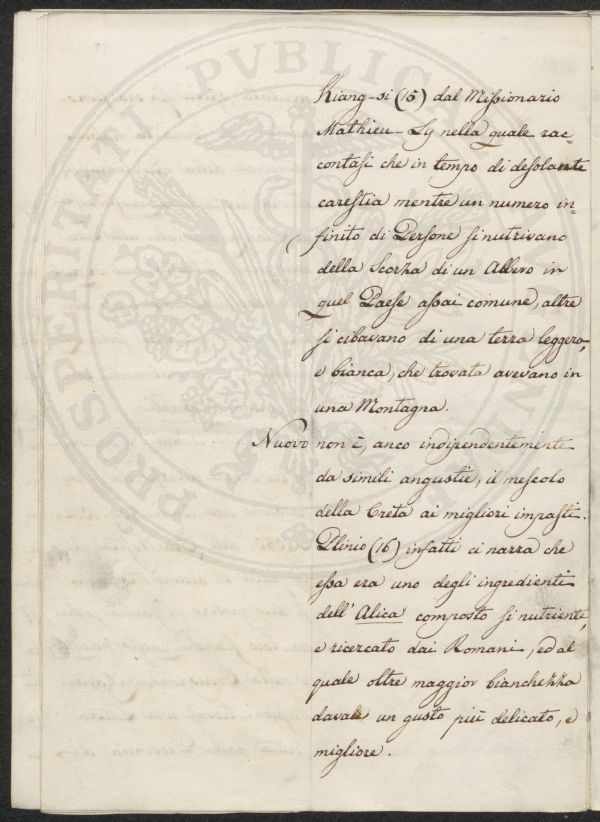 Kiang-si (15) dal Missionario
Mathieu-Ly nella quale rac=
contasi che in tempo di desolante
carestia mentre un numero in=
finito di Persone si nutrivano
della Scorza di un Albero in
quel Paese assai comune, altre
si cibavano di una terra leggera,
e bianca, che trovata avevano in
una Montagna.
Nuovo non è, anco indipendentemente
da simili angustie, il mescolo
della Creta ai migliori impasti.
Plinio (16) infatti ci narra che
essa era uno degli ingredienti
dell' Alica composto si nutriente,
e ricercato dai Romani, ed al
quale oltre maggior bianchezza
davale un gusto più delicato, e
migliore.
PROSPERITATI PUBLICAE